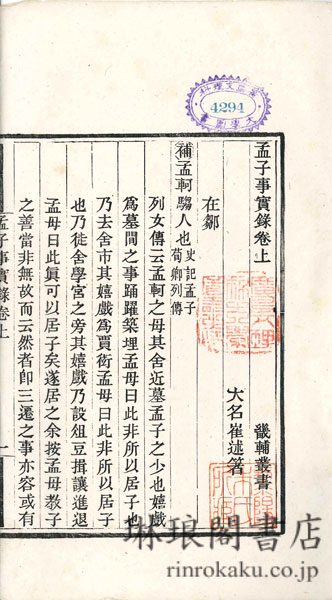 4294
孟子事實錄卷上
畿輔叢書
大名崔述箸
在鄒
補孟軻騶人也史記孟子荀卿列傳
列女傳云孟軻之母其舍近墓孟子之少也嬉戲
爲墓間之事踊躍築埋孟母曰此非所以居子也
乃去舍市其嬉戲爲賈衒孟母曰此非所以居子
也乃徙舍學宮之旁其嬉戲乃設俎豆揖讓進退
孟母曰此眞可以居子矣遂居之余按孟母敎子
之善當非無故而云然者卽三遷之事亦容或有
孟子事實錄卷上
一
琳琅閣書店
rinrokaku.co.jp